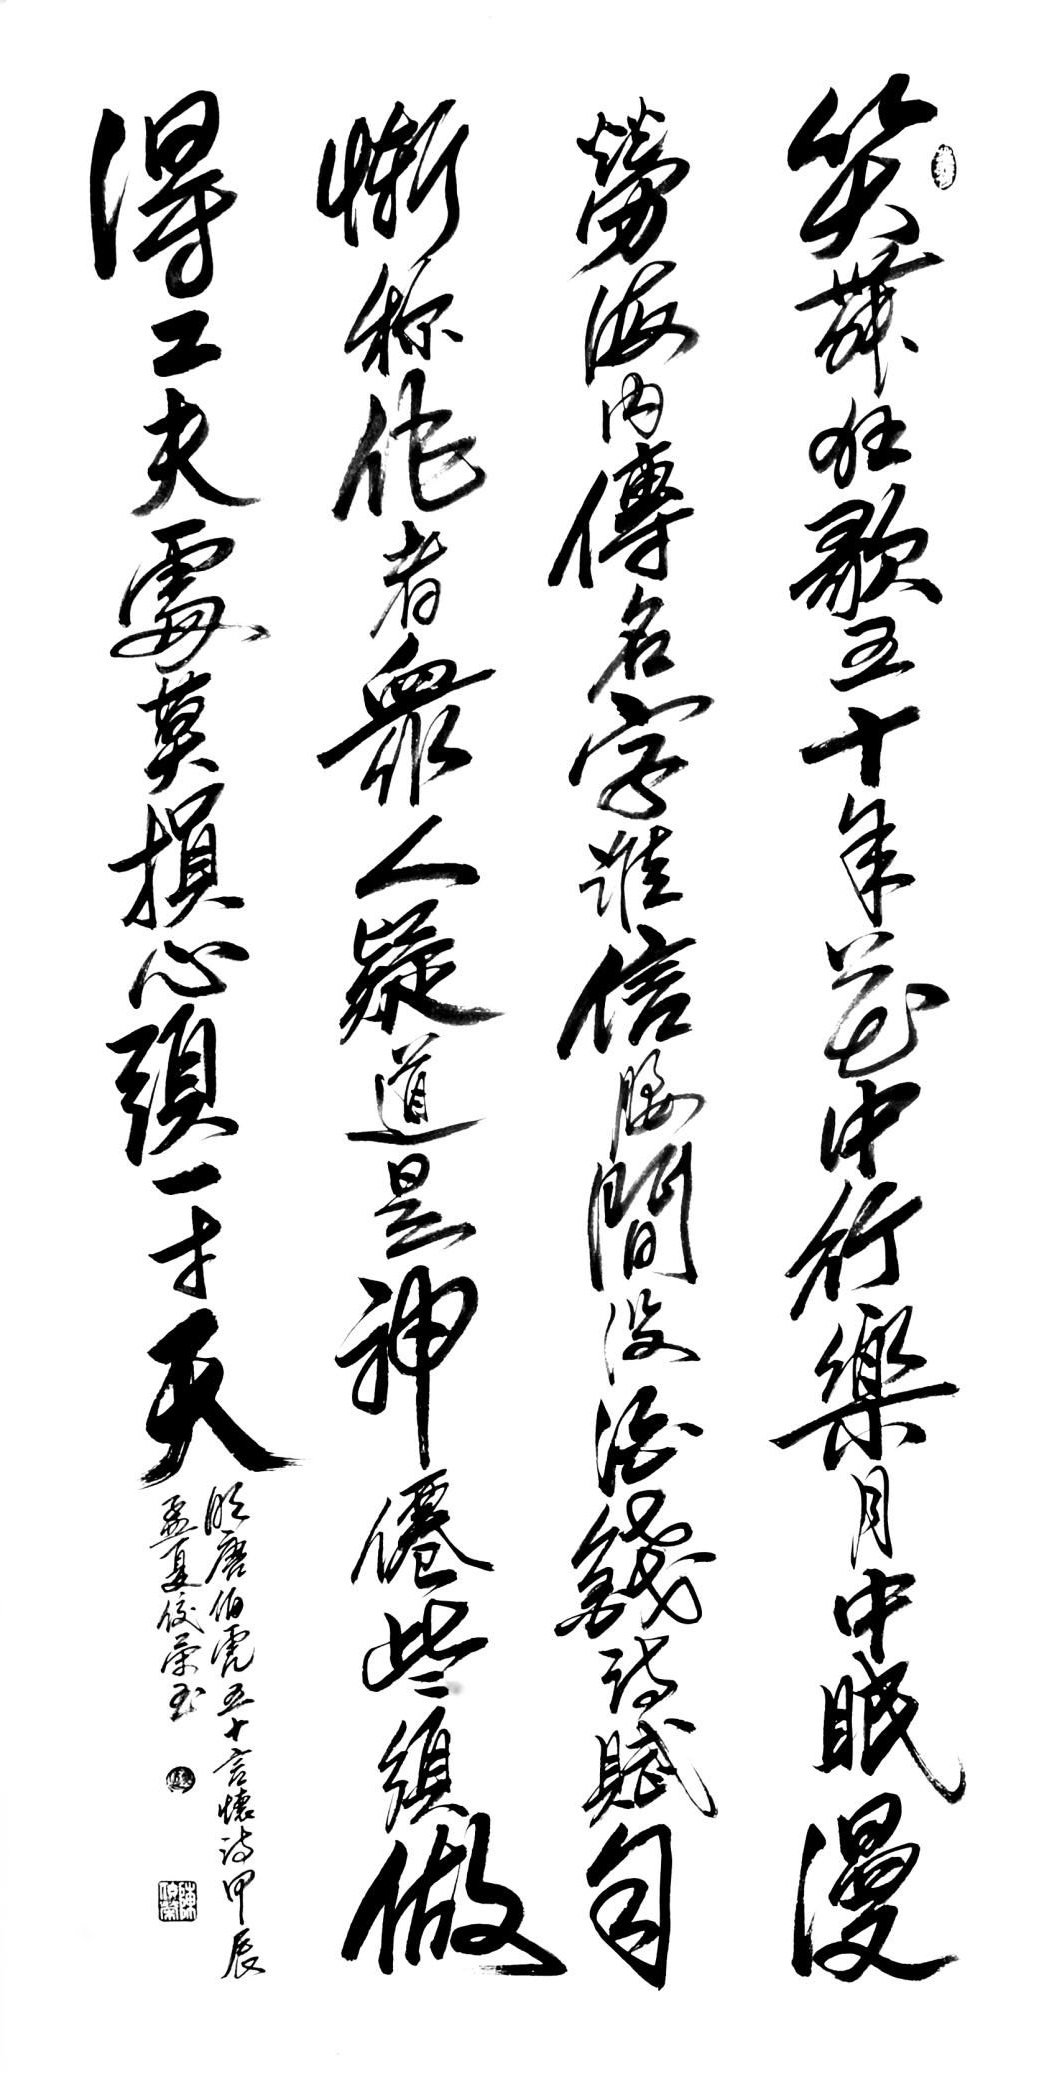 笑舞狂歌五十年花中行樂月中眠漫
勞海内傳名字誰信腰間沒酒錢詩賦自
慚称作者衆人疑道是神僊些須做
得工夫處莫損心頭一寸天
明唐伯虎五十言懷詩甲辰
孟夏俊荣书
陳俊榮